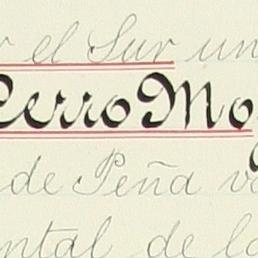 r el Sur un
Cerro Mo
de Peña v
ental de lo